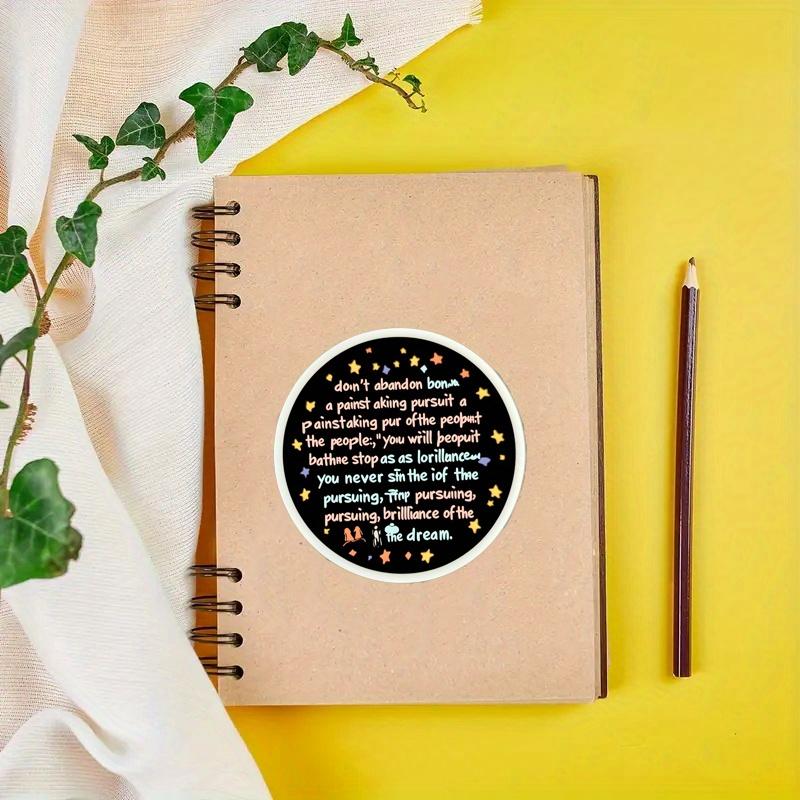 doin't abandon
a painst akiing pursuit a
painstaking pur ofthe
the people:,"you wrill beopuit
bathne stop as as lorillance
you never sin the iof the
pursuing, pursuiing,
pursuing, brillliance of the
the dream.